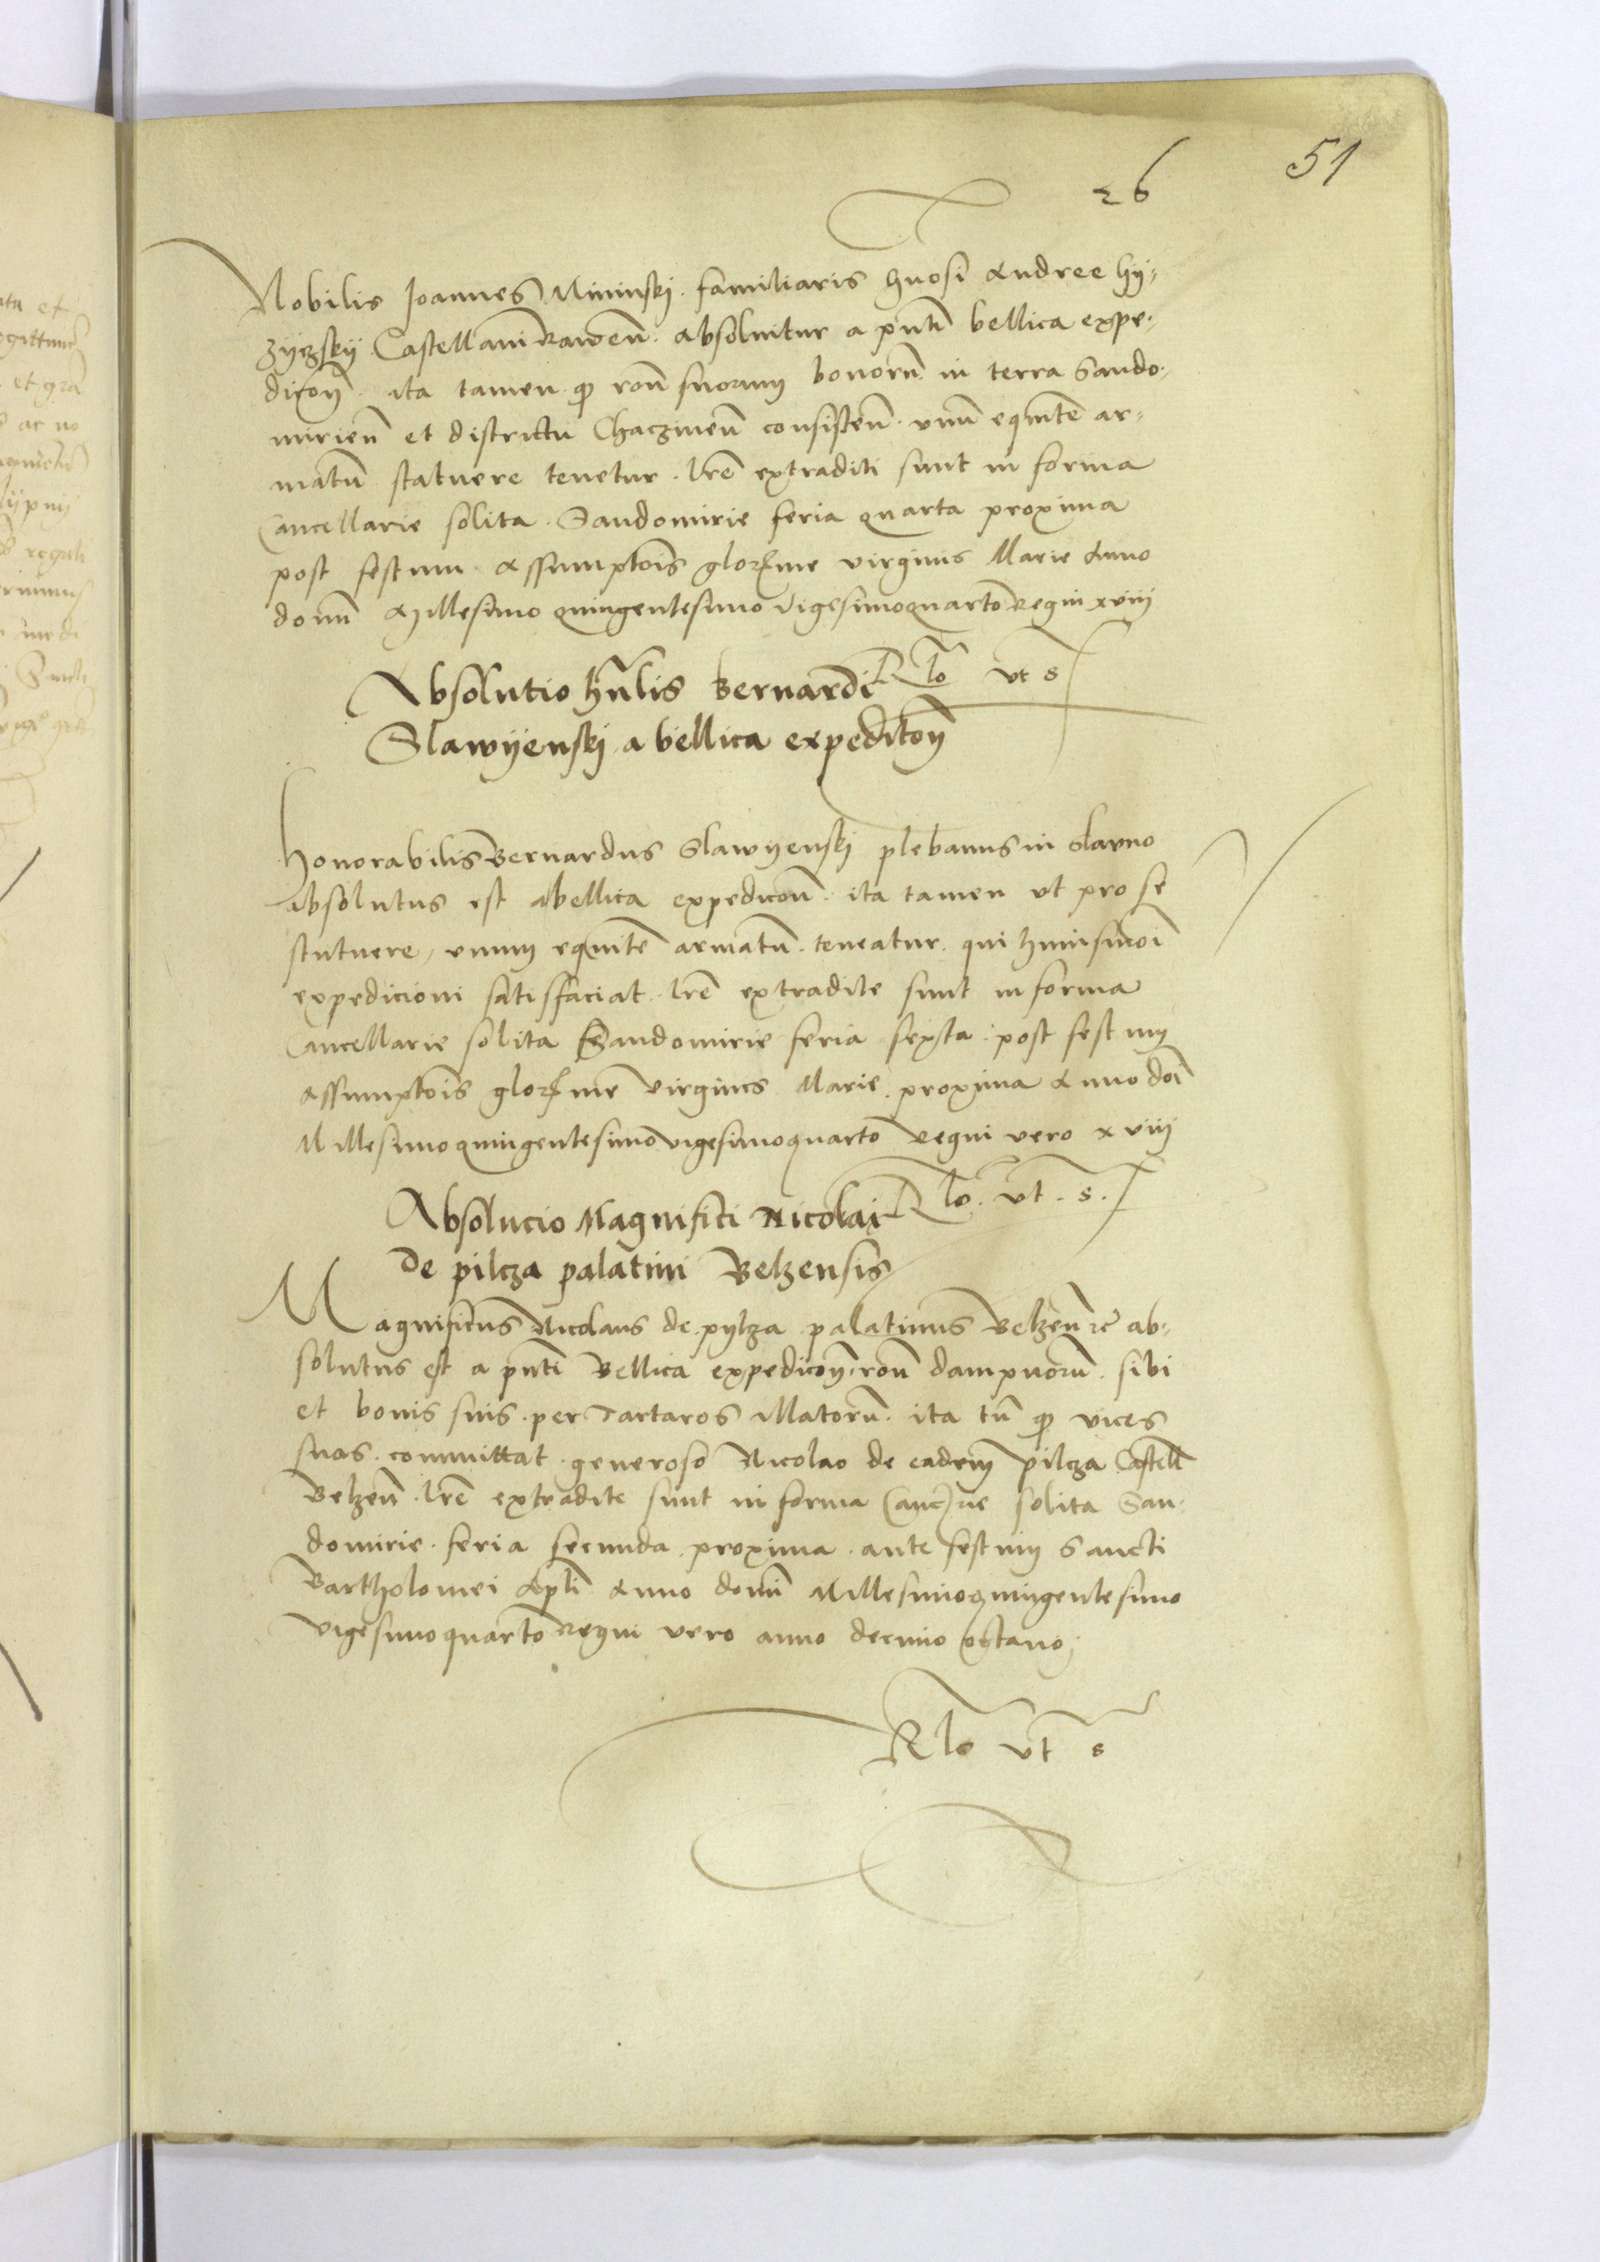 51
26
Nobilis Joannes Mininskj familiaris gnosi Andree hy-
zyczskij Castellani Rawen̄ absolvitur a pn̄ti bellica expe-
dicon̄ ita tamen q̄ ron̄ suorum bonorū in terra Sando-
mirien̄ et districtu Chaczinen̄ consisten̄ unū equitē ar-
matū statuere tenetur lrē extraditi sunt in forma
Cancellarie solita Sandomirie feria quarta proxima
post festum Assumptōis glorme virginis Marie Anno
domī Millesimo quingentesimo vigesimoquarto Regni xviii
Rlō ut s
Absolutio hn̄lis Bernardi
Slawyenskj a bellica expeditōn
Honorabilis Bernardus Slawyenskj plebanus in slavno
absolutus est abellica expedicōn ita tamen ut pro se
statuere unum equitē armatū teneatur qui huiusmōi
expedicioni satisfaciat lrē extradite sunt in forma
Cancellarie solita Sandomirie feria sexta post festum
Assumptōis glormē virginis Marie proxima Anno doī
Millesimoquingentesimovigesimoquarto Regni vero xviii
Rlō ut s.
Absolucio Magnifici Nicolai
de pilcza palatini Belzensis
Magnificus Nicolaus de pylza palatinus Belzen̄ rc̄ ab-
solutus est a pn̄ti Bellica expedicōn ron̄ dampnorū sibi
et bonis suis per Tartaros illatorū ita tn̄ q̄ vices
suas committat generoso Nicolao de eadem pilcza Castell̄
Belzen̄ lrē extradite sunt in forma Canc̄rie solita San-
domirie feria secunda proxima ante festum Sancti
Bartholomei Apl̄i Anno domī Millesimoquingentesimo
vigesimoquarto Regni vero anno decimo octavo
Rlō ut s